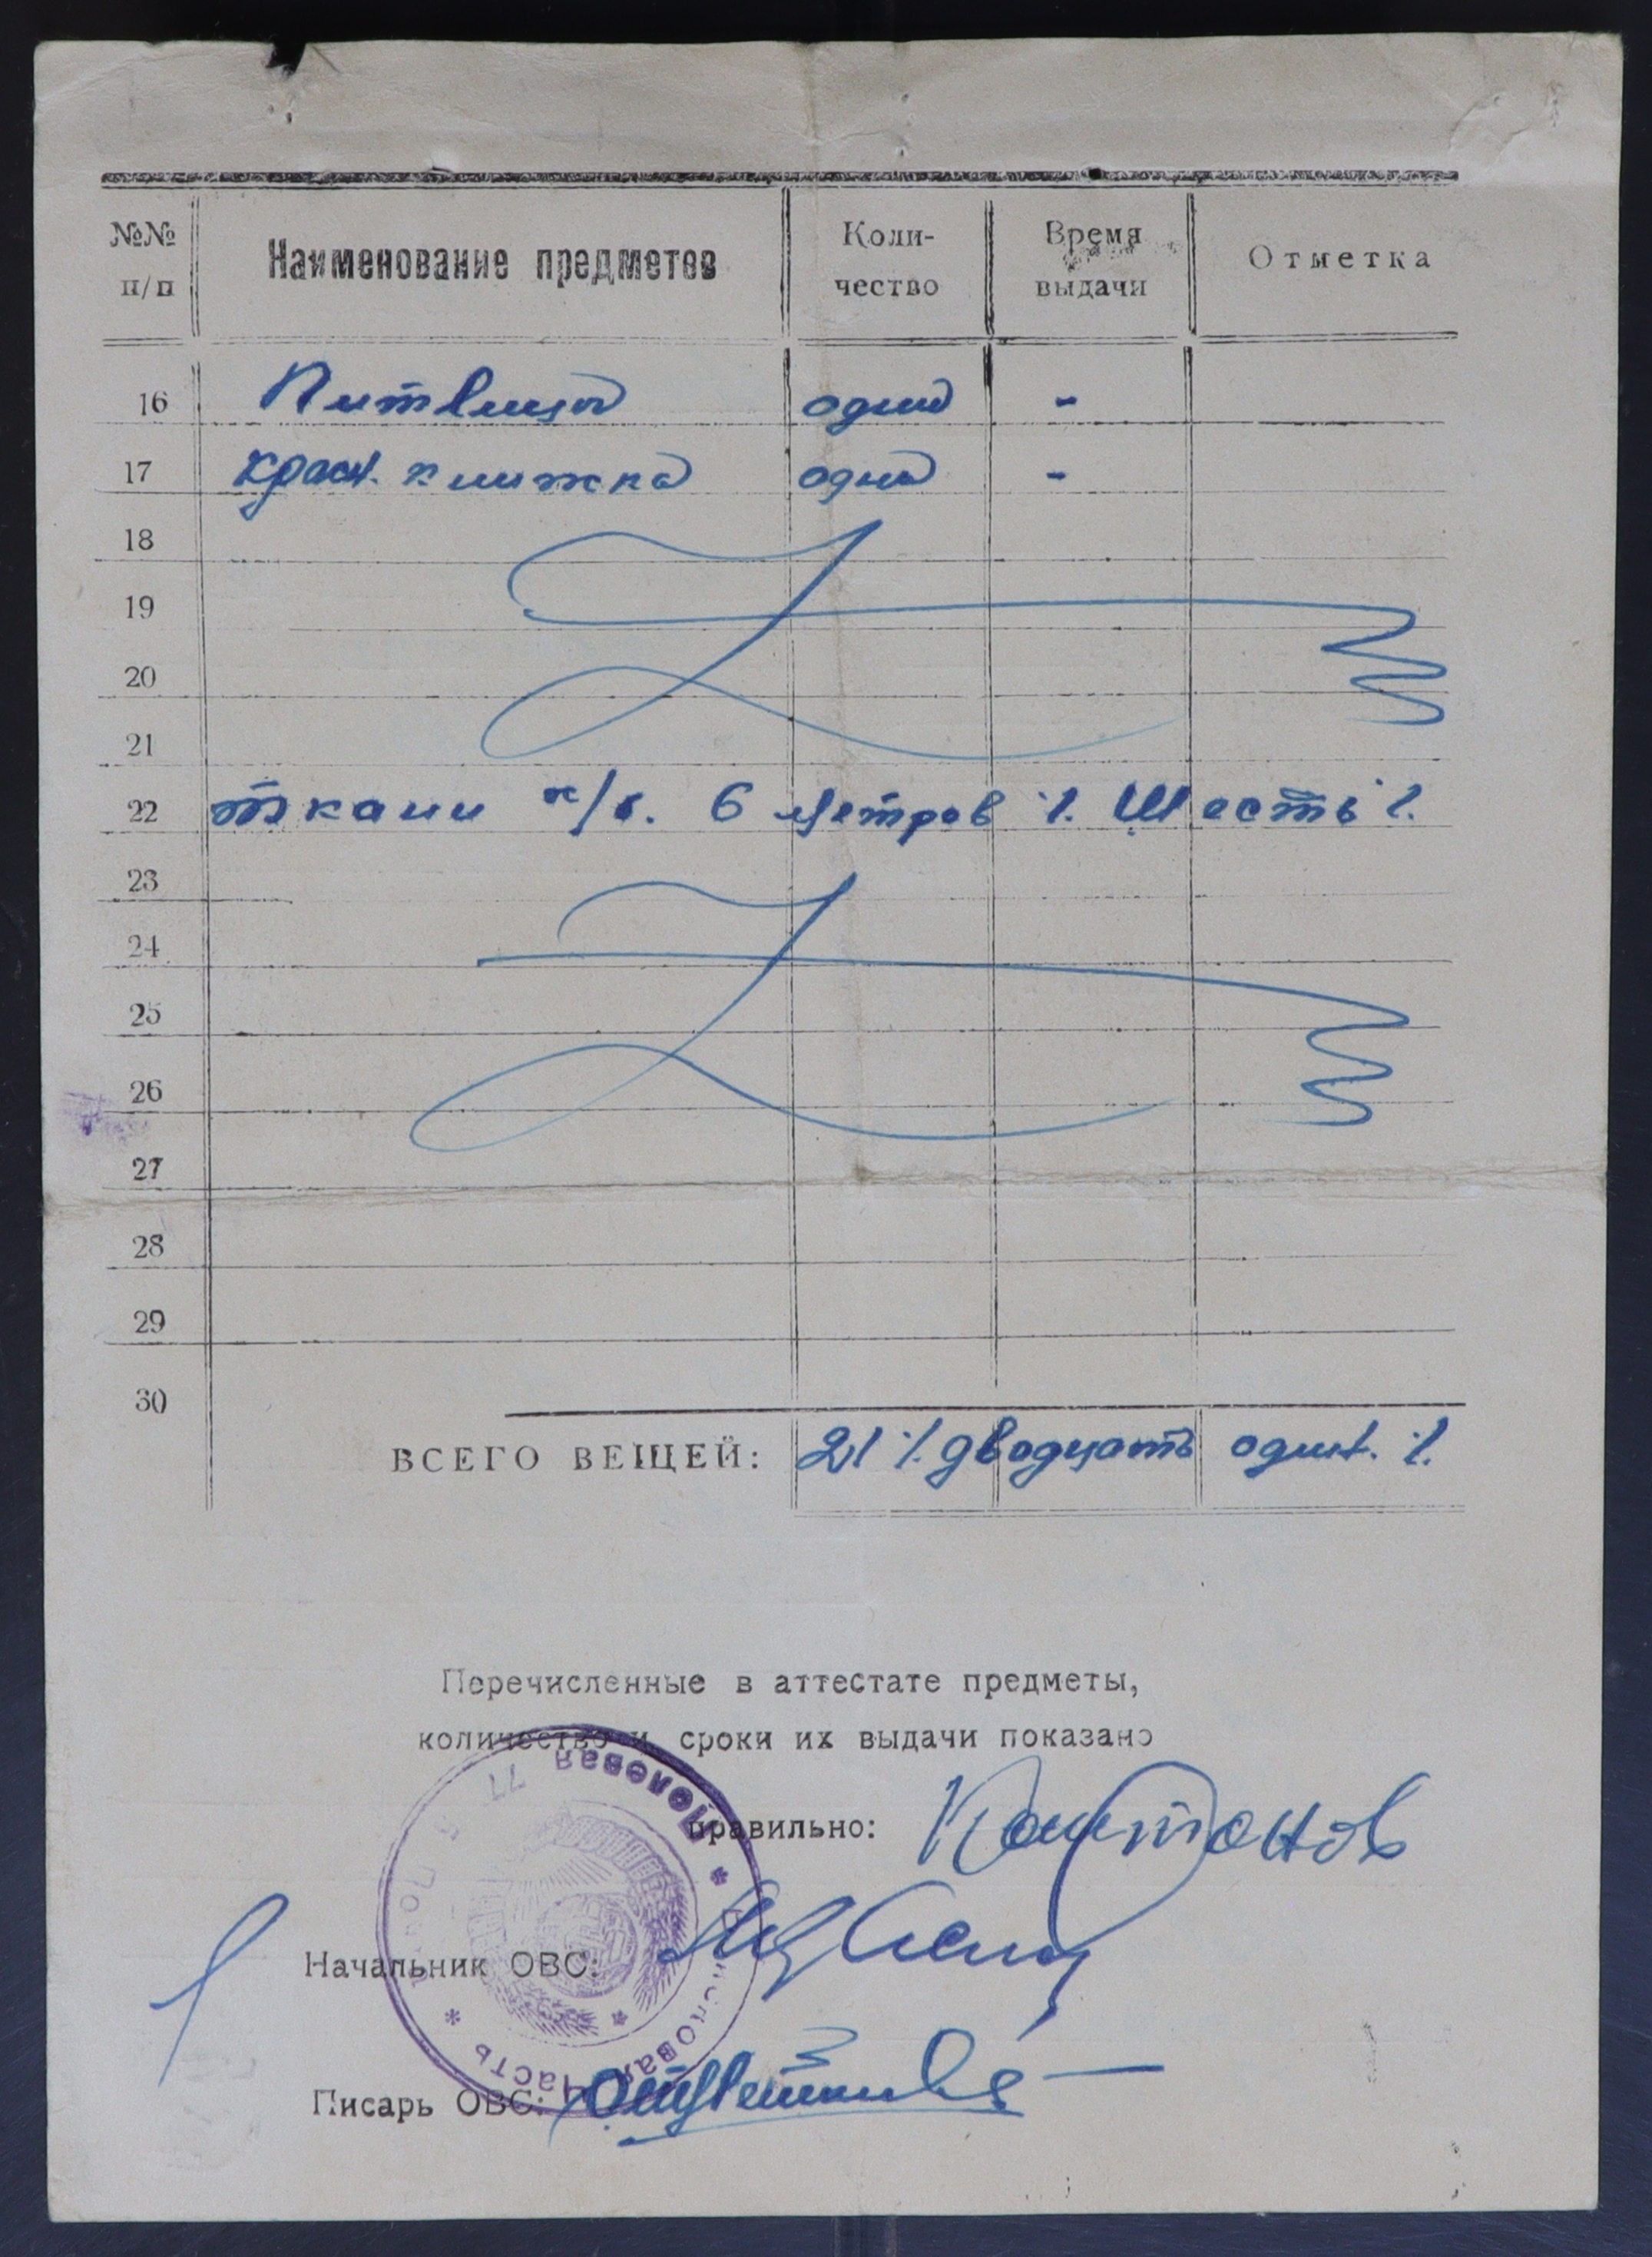 №№ п/п Наименование предметов Коли-чество Время выдачи Отметка
16 одна -
17 красн. книжка одна -
18
19
20
21
22 ткани х/б. 6 метров /. Шесть /.
23
24
25
26
27
28
29
30
ВСЕГО ВЕЩЕЙ: 21 /. двадцать один. /.
Перечисленные в аттестате предметы,
количество и сроки их выдачи показано
правильно:
Начальник ОВС:
Писарь ОВС:
Полевая
часть